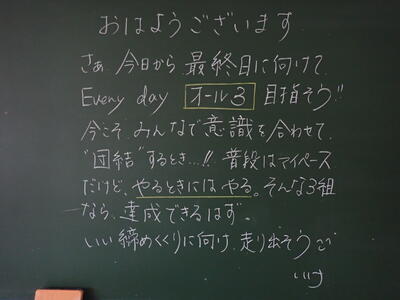 おはようございます
さぁ 今日から 最終日に向けて
Every day オール3 目指そう!!
今こそ みんなで意識を合わせて
"団結"するとき…!! 普段はマイペース
だけど、やるときにはやる。そんな3組
なら、達成できるはず。
いい締めくくりに向け、走り出そう